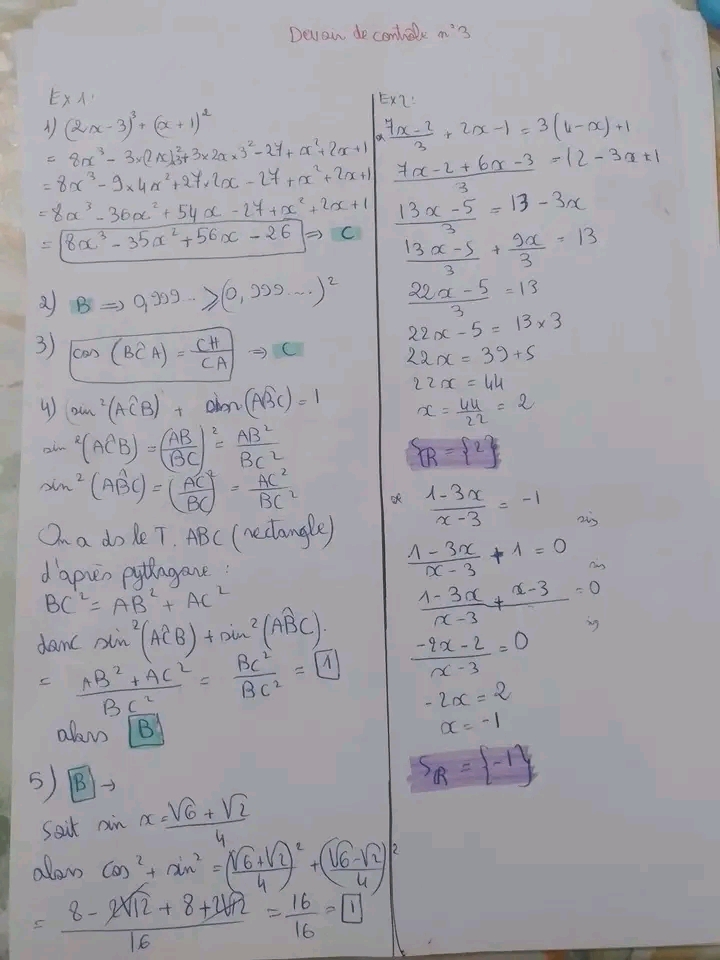 Devoir de contrôle n°3
Ex1:
1) (2x-3)³ + (x+1)²
= 8x³ - 3×(2x)²×3 + 3×2x×3² - 27 + x² + 2x + 1
= 8x³ - 9×4x² + 27×2x - 27 + x² + 2x + 1
= 8x³ - 36x² + 54x - 27 + x² + 2x + 1
= 8x³ - 35x² + 56x - 26 ⇒ C
2) B ⇒ 0,999... ⩾ (0,999....)²
3) cos (BĈA) = CH/CA ⇒ C
4) sin²(AĈB) + (AB̂C) = 1
sin²(AĈB) = (AB/BC)² = AB²/BC²
sin²(AB̂C) = (AC/BC)² = AC²/BC²
On a ds le T. ABC (rectangle)
d'après pythagore :
BC² = AB² + AC²
donc sin²(AĈB) + sin²(AB̂C).
= (AB² + AC²)/BC² = BC²/BC² = 1
alors B
5) B →
Soit sin x = (√6 + √2)/4
alors cos² + sin² = ((√6+√2)/4)² + ((√6-√2)/4)²
= (8 - 2√12 + 8 + 2√12)/16 = 16/16 = 1
Ex2:
(7x-2)/3 + 2x - 1 = 3(4-x) + 1
(7x - 2 + 6x - 3)/3 = 12 - 3x + 1
(13x - 5)/3 = 13 - 3x
(13x - 5)/3 + 9x/3 = 13
(22x - 5)/3 = 13
22x - 5 = 13×3
22x = 39 + 5
22x = 44
x = 44/22 = 2
Sℝ = {2}
(1-3x)/(x-3) = -1
(1-3x)/(x-3) + 1 = 0
(1-3x + x-3)/(x-3) = 0
(-2x-2)/(x-3) = 0
-2x = 2
x = -1
Sℝ = {-1}